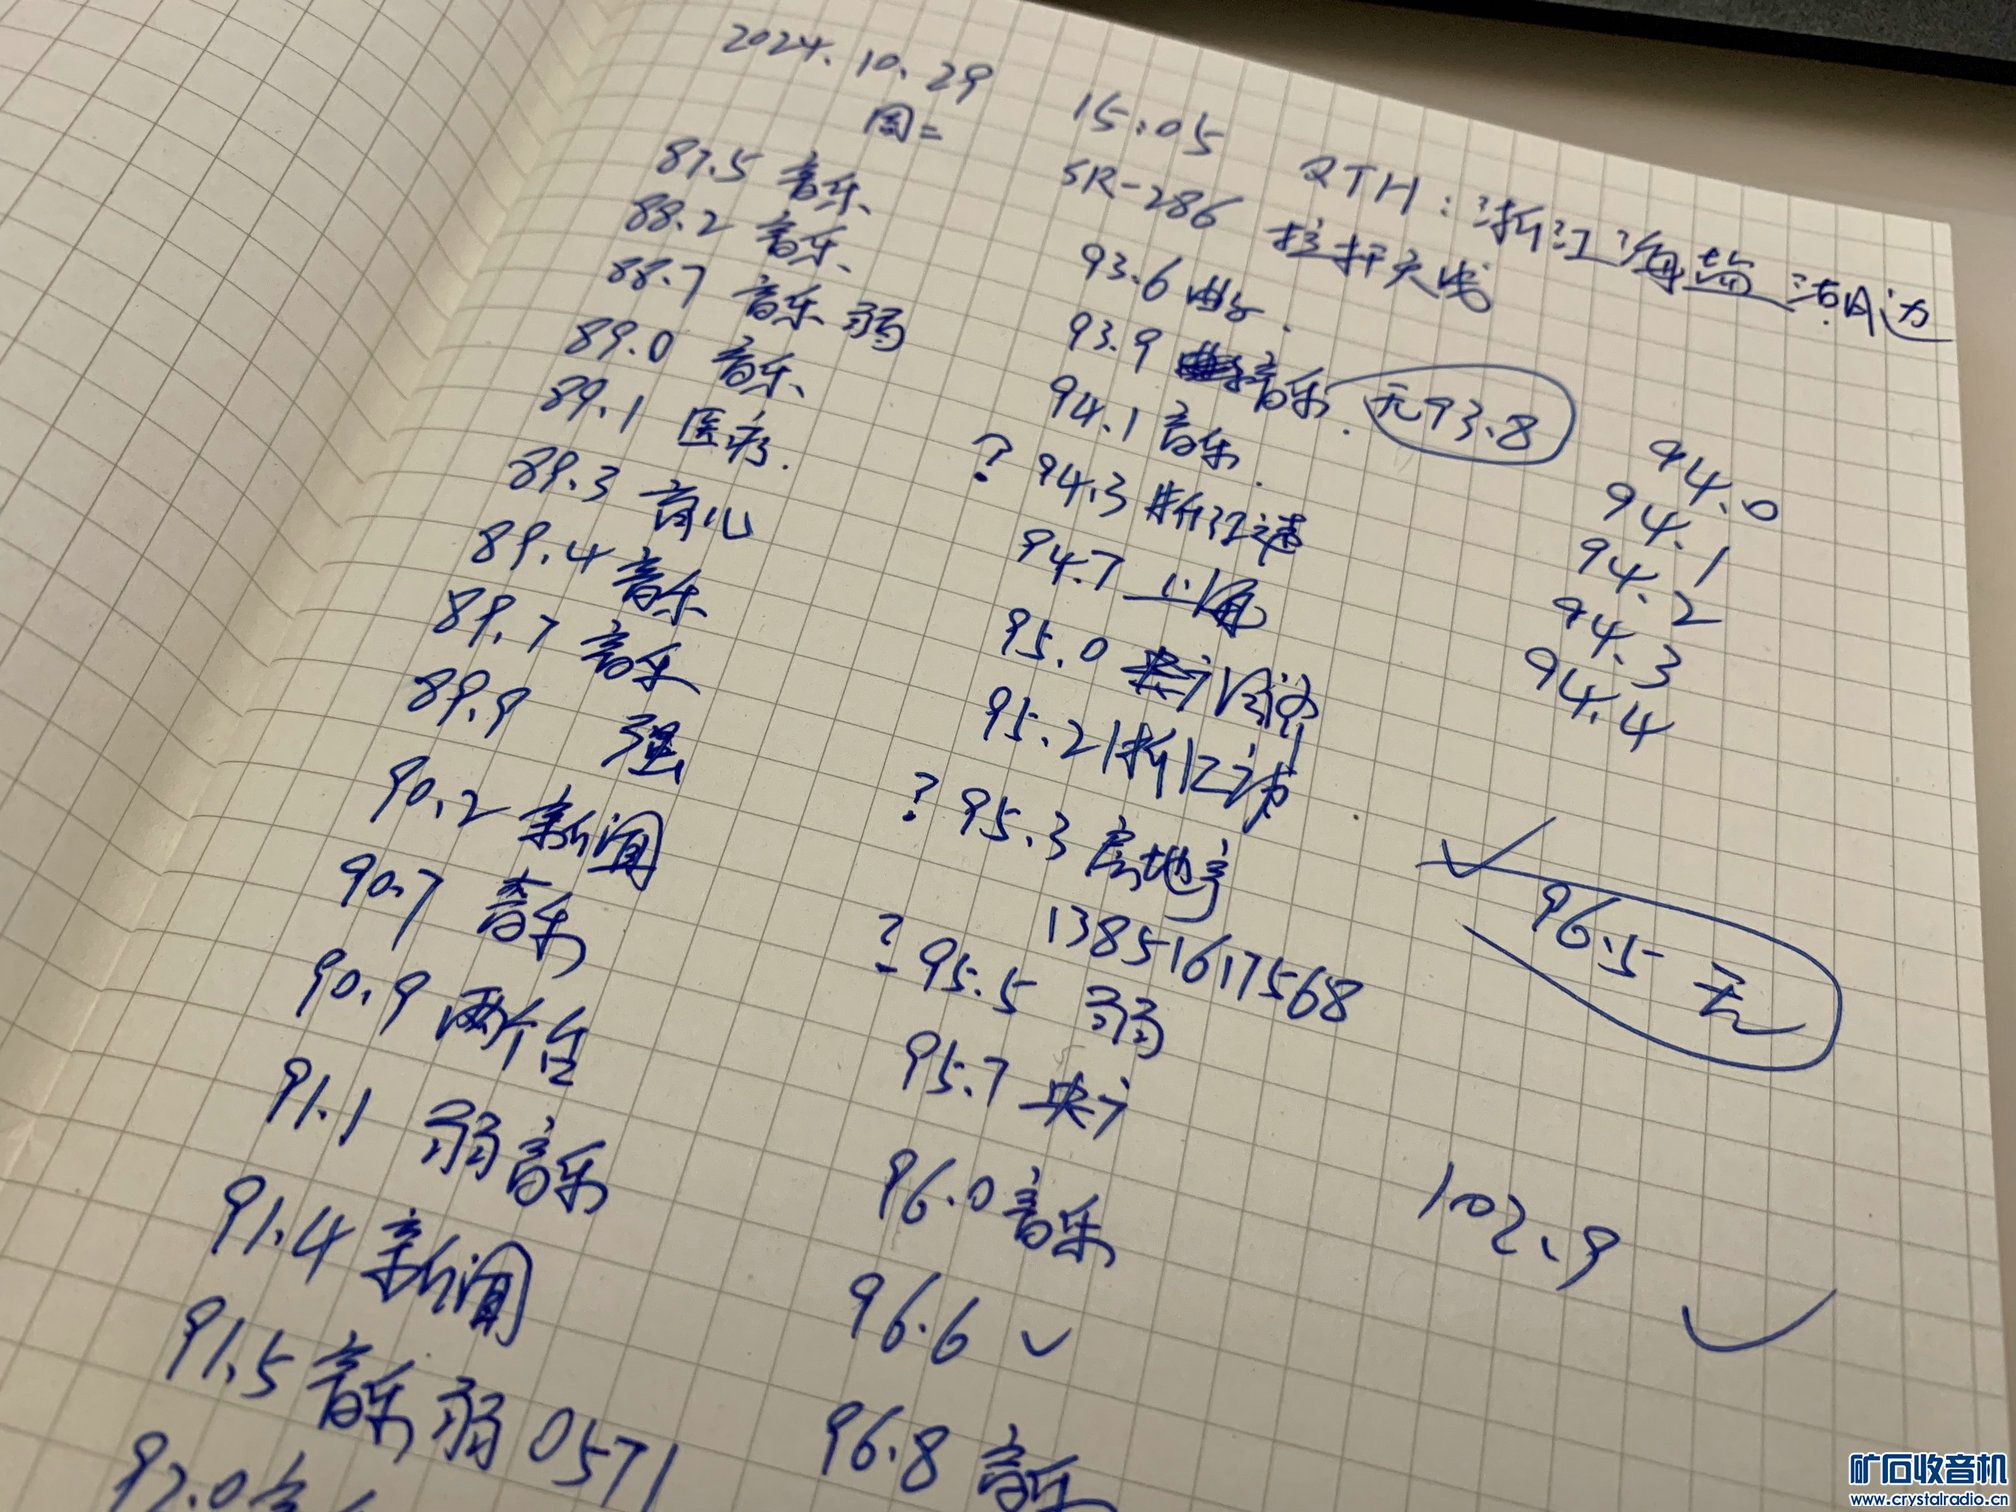 2024.10.29 15:05 QTH: 浙江海盐湖边
周二 SR-286 拉杆天线
87.5 音乐
88.2 音乐
88.7 音乐 弱
89.0 音乐
89.1 医疗.
89.3 育儿
89.4 音乐
89.7 音乐
89.9 强
90.2 新闻
90.7 音乐
90.9 两个台
91.1 弱音乐
91.4 新闻
91.5 音乐 弱 0571
92.0 音
93.6 曲
93.9 音乐. 无93.8
94.1 音乐.
? 94.3 浙江
94.7 上海
95.0
95.2 浙江
? 95.3 房地产
13851617568
? 95.5 弱
95.7 央广
96.0 音乐
96.6 ✓
96.8 音乐
94.0
94.1
94.2
94.3
94.4
✓ 96.5 无
102.9 ✓
矿石收音机
www.crystalradio.cn